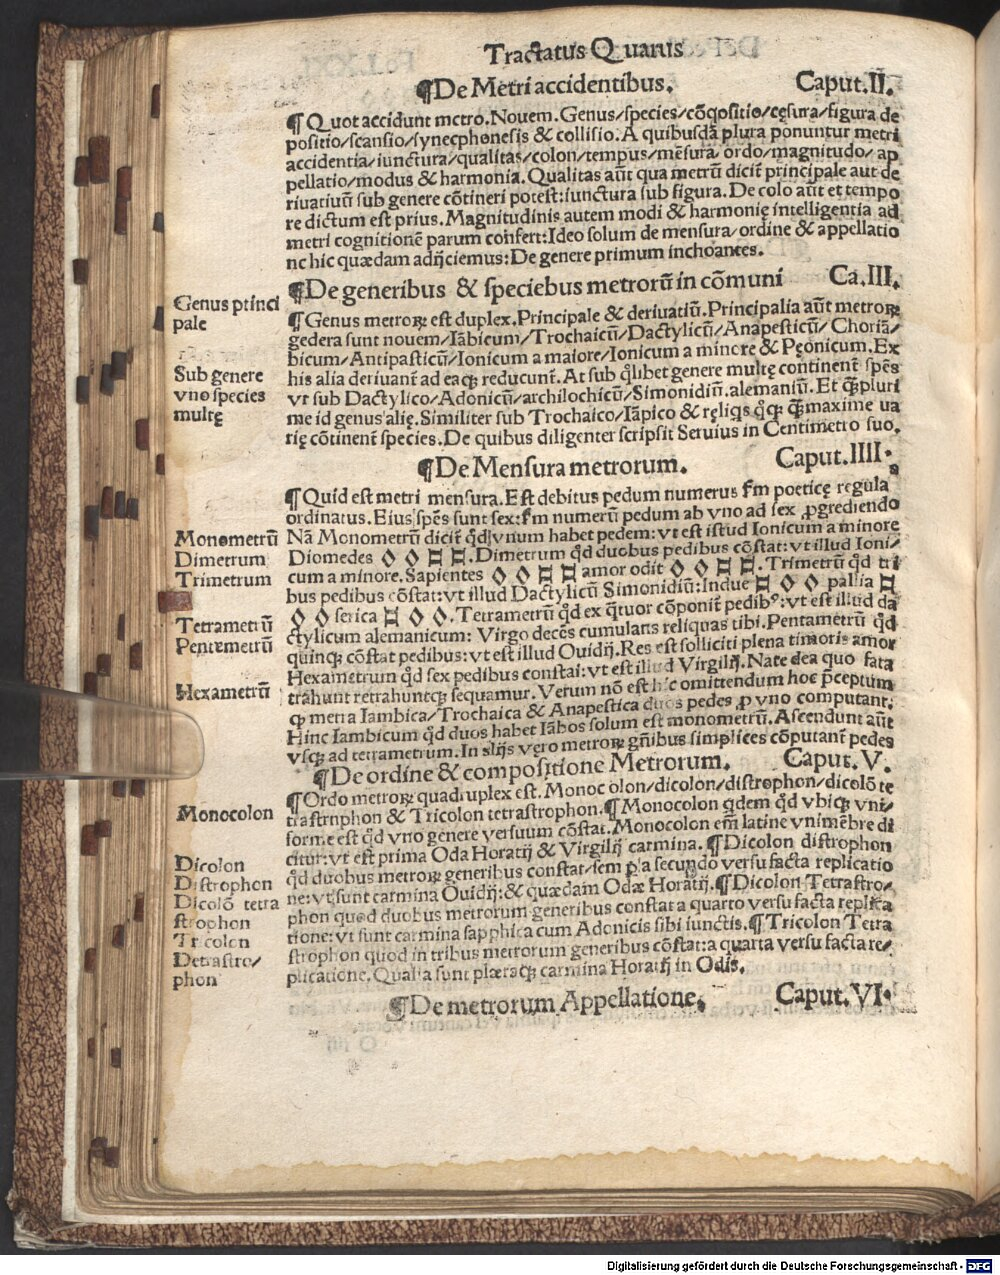 Tractatus Quartus
¶De Metri accidentibus. Caput.II.
¶Quot accidunt metro.Nouem.Genus/species/cõpositio/cęsura/figura de
positio/scansio/synecphonesis & collisio.A quibusdã plura ponuntur metri
accidentia/iunctura/qualitas/colon/tempus/mẽsura/ordo/magnitudo/ap
pellatio/modus & harmonia.Qualitas aũt qua metrũ dicit̃ principale aut de
riuatiuũ sub genere cõtineri potest:iunctura sub figura.De colo aũt et tempo
re dictum est prius.Magnitudinis autem modi & harmonię intelligentia ad
metri cognitionẽ parum confert:Ideo solum de mensura/ordine & appellatio
ne hic quædam adijciemus:De genere primum inchoantes.
¶De generibus & speciebus metrorũ in cõmuni Ca.III.
Genus princi
pale
¶Genus metroꝝ est duplex.Principale & deriuatiũ.Principalia aũt metroꝝ
gedera sunt nouem/Iãbicum/Trochaicũ/Dactylicũ/Anapesticũ/Choriã/
bicum/Antipasticũ/Ionicum a maiore/Ionicum a minore & Pęonicum.Ex
Sub genere
vno species
multę
his alia deriuant̃ ad eaqꝫ reducunt̃.At sub q̃libet genere multę continent̃ spẽs
vt sub Dactylico/Adonicũ/archilochicũ/Simonidiũ.alemaniũ.Et qꝫ̃pluri
me id genus alię.Similiter sub Trochaico/Iãpico & reliqs q̃qꝫ qꝫ̃maxime ua
rię cõtinent̃ species.De quibus diligenter scripsit Seruius in Centimetro suo.
¶De Mensura metrorum. Caput.IIII.
¶Quid est metri mensura.Est debitus pedum numerus ẜm poeticę regula
ordinatus.Eius spẽs sunt sex:ẜm numerũ pedum ab vno ad sex ꝓgrediendo
Monometrũ
Nã Monometrũ dicit̃ qd̃ vnum habet pedem:vt est istud Ionicum a minore
Dimetrum
Diomedes ◊ ◊ □ □.Dimetrum qd̃ duobus pedibus cõstat:vt illud Ioni/
Trimetrum
cum a minore.Sapientes ◊ ◊ □ □ amor odit ◊ ◊ □ □.Trimetrũ qd̃ tri
bus pedibus cõstat:vt illud Dactylicũ Simonidiũ:Indue □ ◊ ◊ pallia □
Tetrametrũ
◊ ◊ serica □ ◊ ◊.Tetrametrũ qd̃ ex q̃tuor cõponit̃ pedibꝰ:vt est illud da
Pentametrũ
ctylicum alemanicum: Virgo decẽs cumulans reliquas tibi.Pentametrũ qd̃
quinqꝫ cõstat pedibus:vt est illud Ouidij.Res est solliciti plena timoris amor
Hexametrũ
Hexametrum qd̃ sex pedibus constat:vt est illud Virgilij.Nate dea quo fata
trahunt retrahuntqꝫ sequamur.Verum nõ est hic omittendum hoc p̃ceptum
qꝫ metra Iambica/Trochaica & Anapestica duos pedes ꝓ vno computant.
Hinc Iambicum qd̃ duos habet Iãbos solum est monometrũ.Ascendunt aũt
vsqꝫ ad tetrametrum.In alijs vero metroꝝ gñibus simplices cõputant̃ pedes
¶De ordine & compositione Metrorum. Caput.V.
¶Ordo metroꝝ quadruplex est.Monocolon/dicolon/distrophon/dicolõ te
Monocolon
trastrophon & Tricolon tetrastrophon.¶Monocolon qdem qd̃ vbiqꝫ vni/
forme est qd̃ vno genere versuum cõstat.Monocolon em̃ latine vnimẽbre di
citur:vt est prima Oda Horatij & Virgilij carmina.¶Dicolon distrophon
Dicolon
Distrophon
qd̃ duobus metroꝝ generibus constat/semper a secundo versu facta replicatio
ne:vt sunt carmina Ouidij:& quædam Odæ Horatij.¶Dicolon Tetrastro/
Dicolõ tetra
strophon
phon quod duobus metrorum generibus constat a quarto versu facta replica
tione:vt sunt carmina sapphica cum Adonicis sibi iunctis.¶Tricolon Tetra
Tricolon
Detrastro/
phon
strophon quod in tribus metrorum generibus cõstat:a quarta versu facta re/
plicatione.Qualia sunt plæraqꝫ carmina Horatij in Odis.
¶De metrorum Appellatione. Caput.VI.
Digitalisierung gefördert durch die Deutsche Forschungsgemeinschaft - DFG